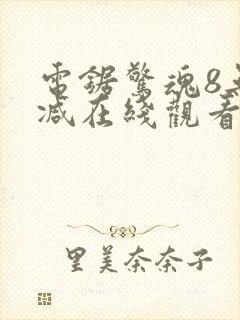 電鋸驚魂8
减在綫觀看
里美奈奈子